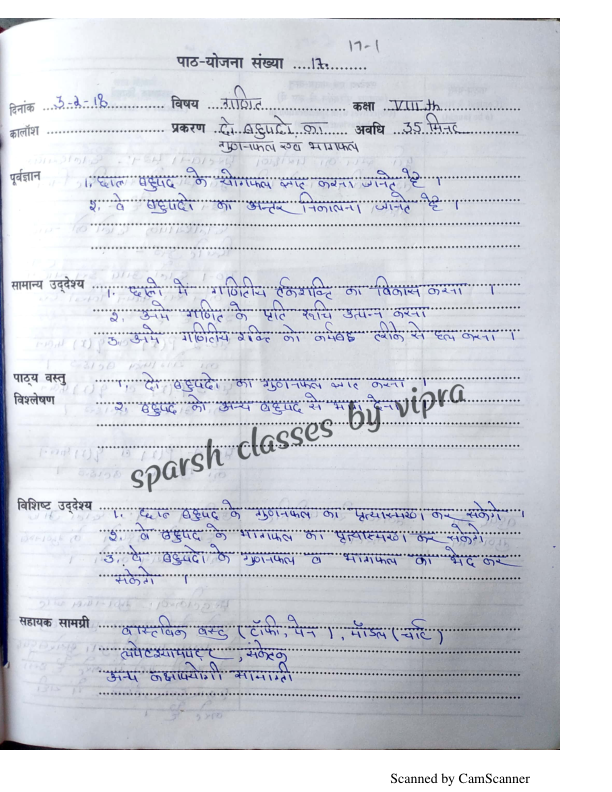 17-1
पाठ-योजना संख्या ....17..........
दिनांक 3-2-18 विषय गणित कक्षा VIII th
कालॉश प्रकरण दो बहुपदो का अवधि 35 मिनट
गुणनफल एवं भागफल
पूर्वज्ञान
1. छात्र बहुपद के योगफल ज्ञात करना जानते है ।
2. वे बहुपदो का अन्तर निकालना जानते है ।
सामान्य उद्‌देश्य 1. छात्रो मे गणितीय तर्कशक्ति का विकास करना ।
2. उनमे गणित के प्रति रूचि उत्पन्न करना
3. उनमे गणितीय शक्ति को क्रमबद्ध तरीके से करना ।
पाठ्य वस्तु 1. दो बहुपदो का गुणनफल ज्ञात करना ।
विश्लेषण 2. बहुपद को अन्य बहुपद से भाग देना ।
sparsh classes by vipra
विशिष्ट उद्‌देश्य 1. छात्र बहुपद के गुणनफल का प्रत्यास्मरण कर सकेगे ।
2. वे बहुपद के भागफल का प्रत्यास्मरण कर सकेगे
3. वे बहुपदो के गुणनफल व भागफल का भेद कर
सकेगे ।
सहायक सामग्री
वास्तविक वस्तु (टॉफी, पेन), मॉडल (चार्ट)
लपेटश्यामपट्ट, संकेतक
अन्य कक्षोपयोगी सामाग्री
Scanned by CamScanner